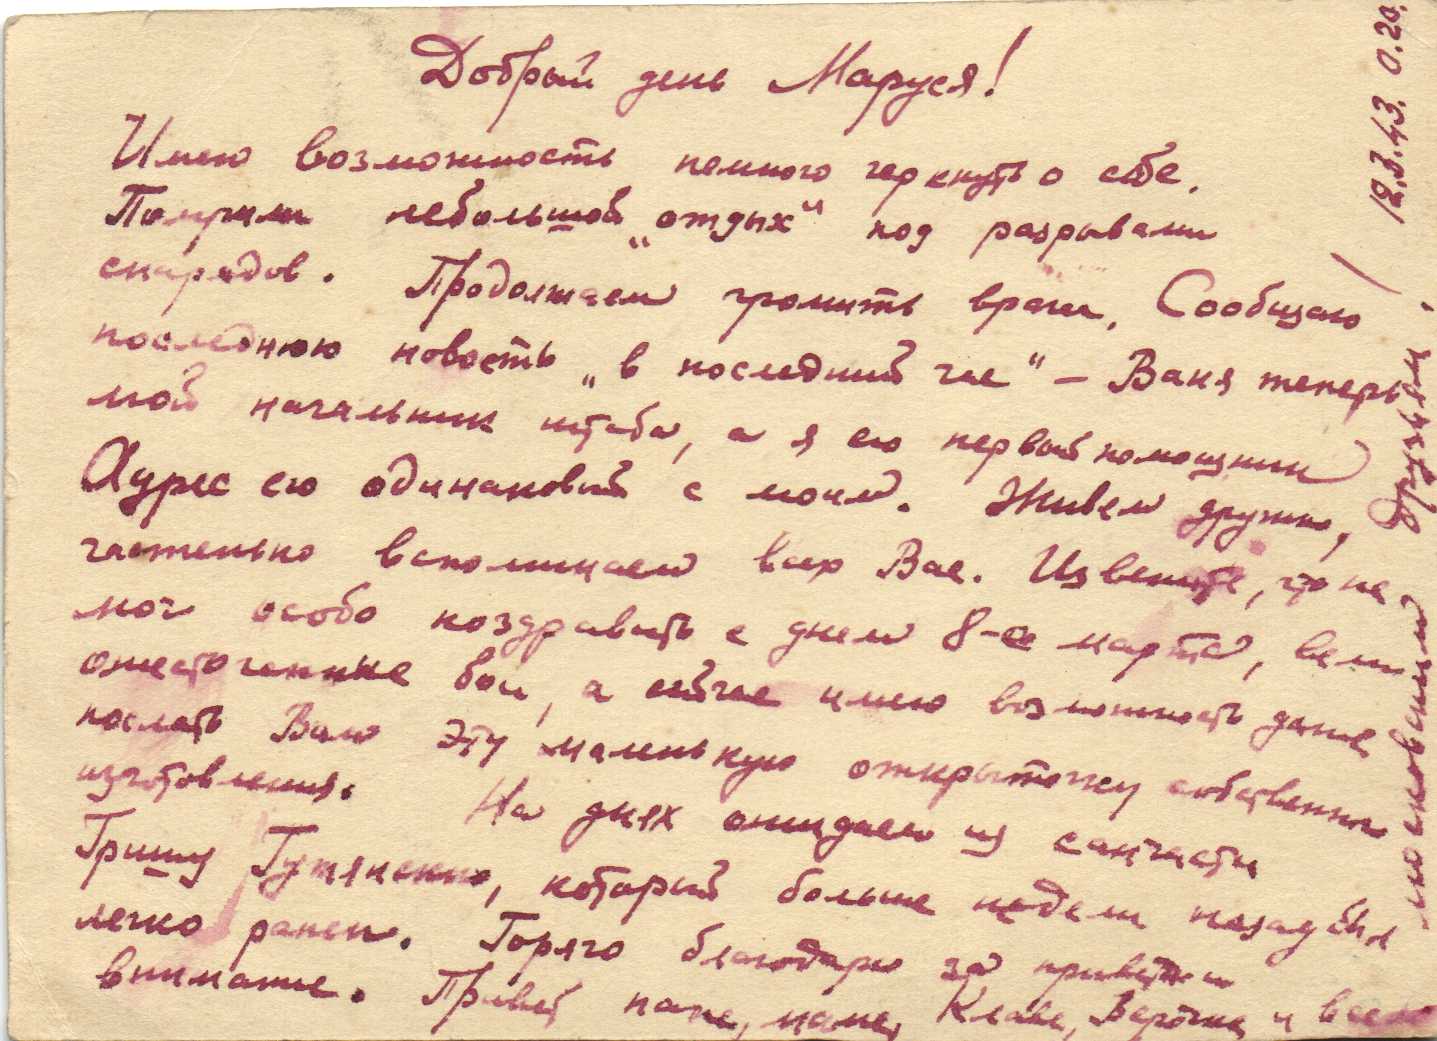 Добрый день Маруся!
Имею возможность немного черкнуть о себе.
Получили небольшой „отдых“ под разрывами
снарядов. Продолжаем громить врага. Сообщаю
последнюю новость „в последний час“ – Ваня теперь
мой начальник штаба, а я его первый помощник
Адрес его одинаковый с моим. Живем дружно,
частенько вспоминаем всех Вас. Извените, что не
мог особо поздравить с днем 8-ое марта, вели
ожесточенные бои, а сейчас имею возможность даже
послать Вам эту маленькую открыточку собственного
изготовления. На днях ожидаем из санчасти
Гришу Гутянского, который больше недели назад был
легко ранен. Горячо благодарю за приветы и
внимание. Привет папе, маме, Клаве, Верочке и всем
московским друзьям!
12.3.43. 0.20.